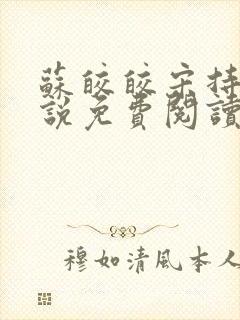 蘇皎皎宋持
說免費閱讀
穆如清風本人